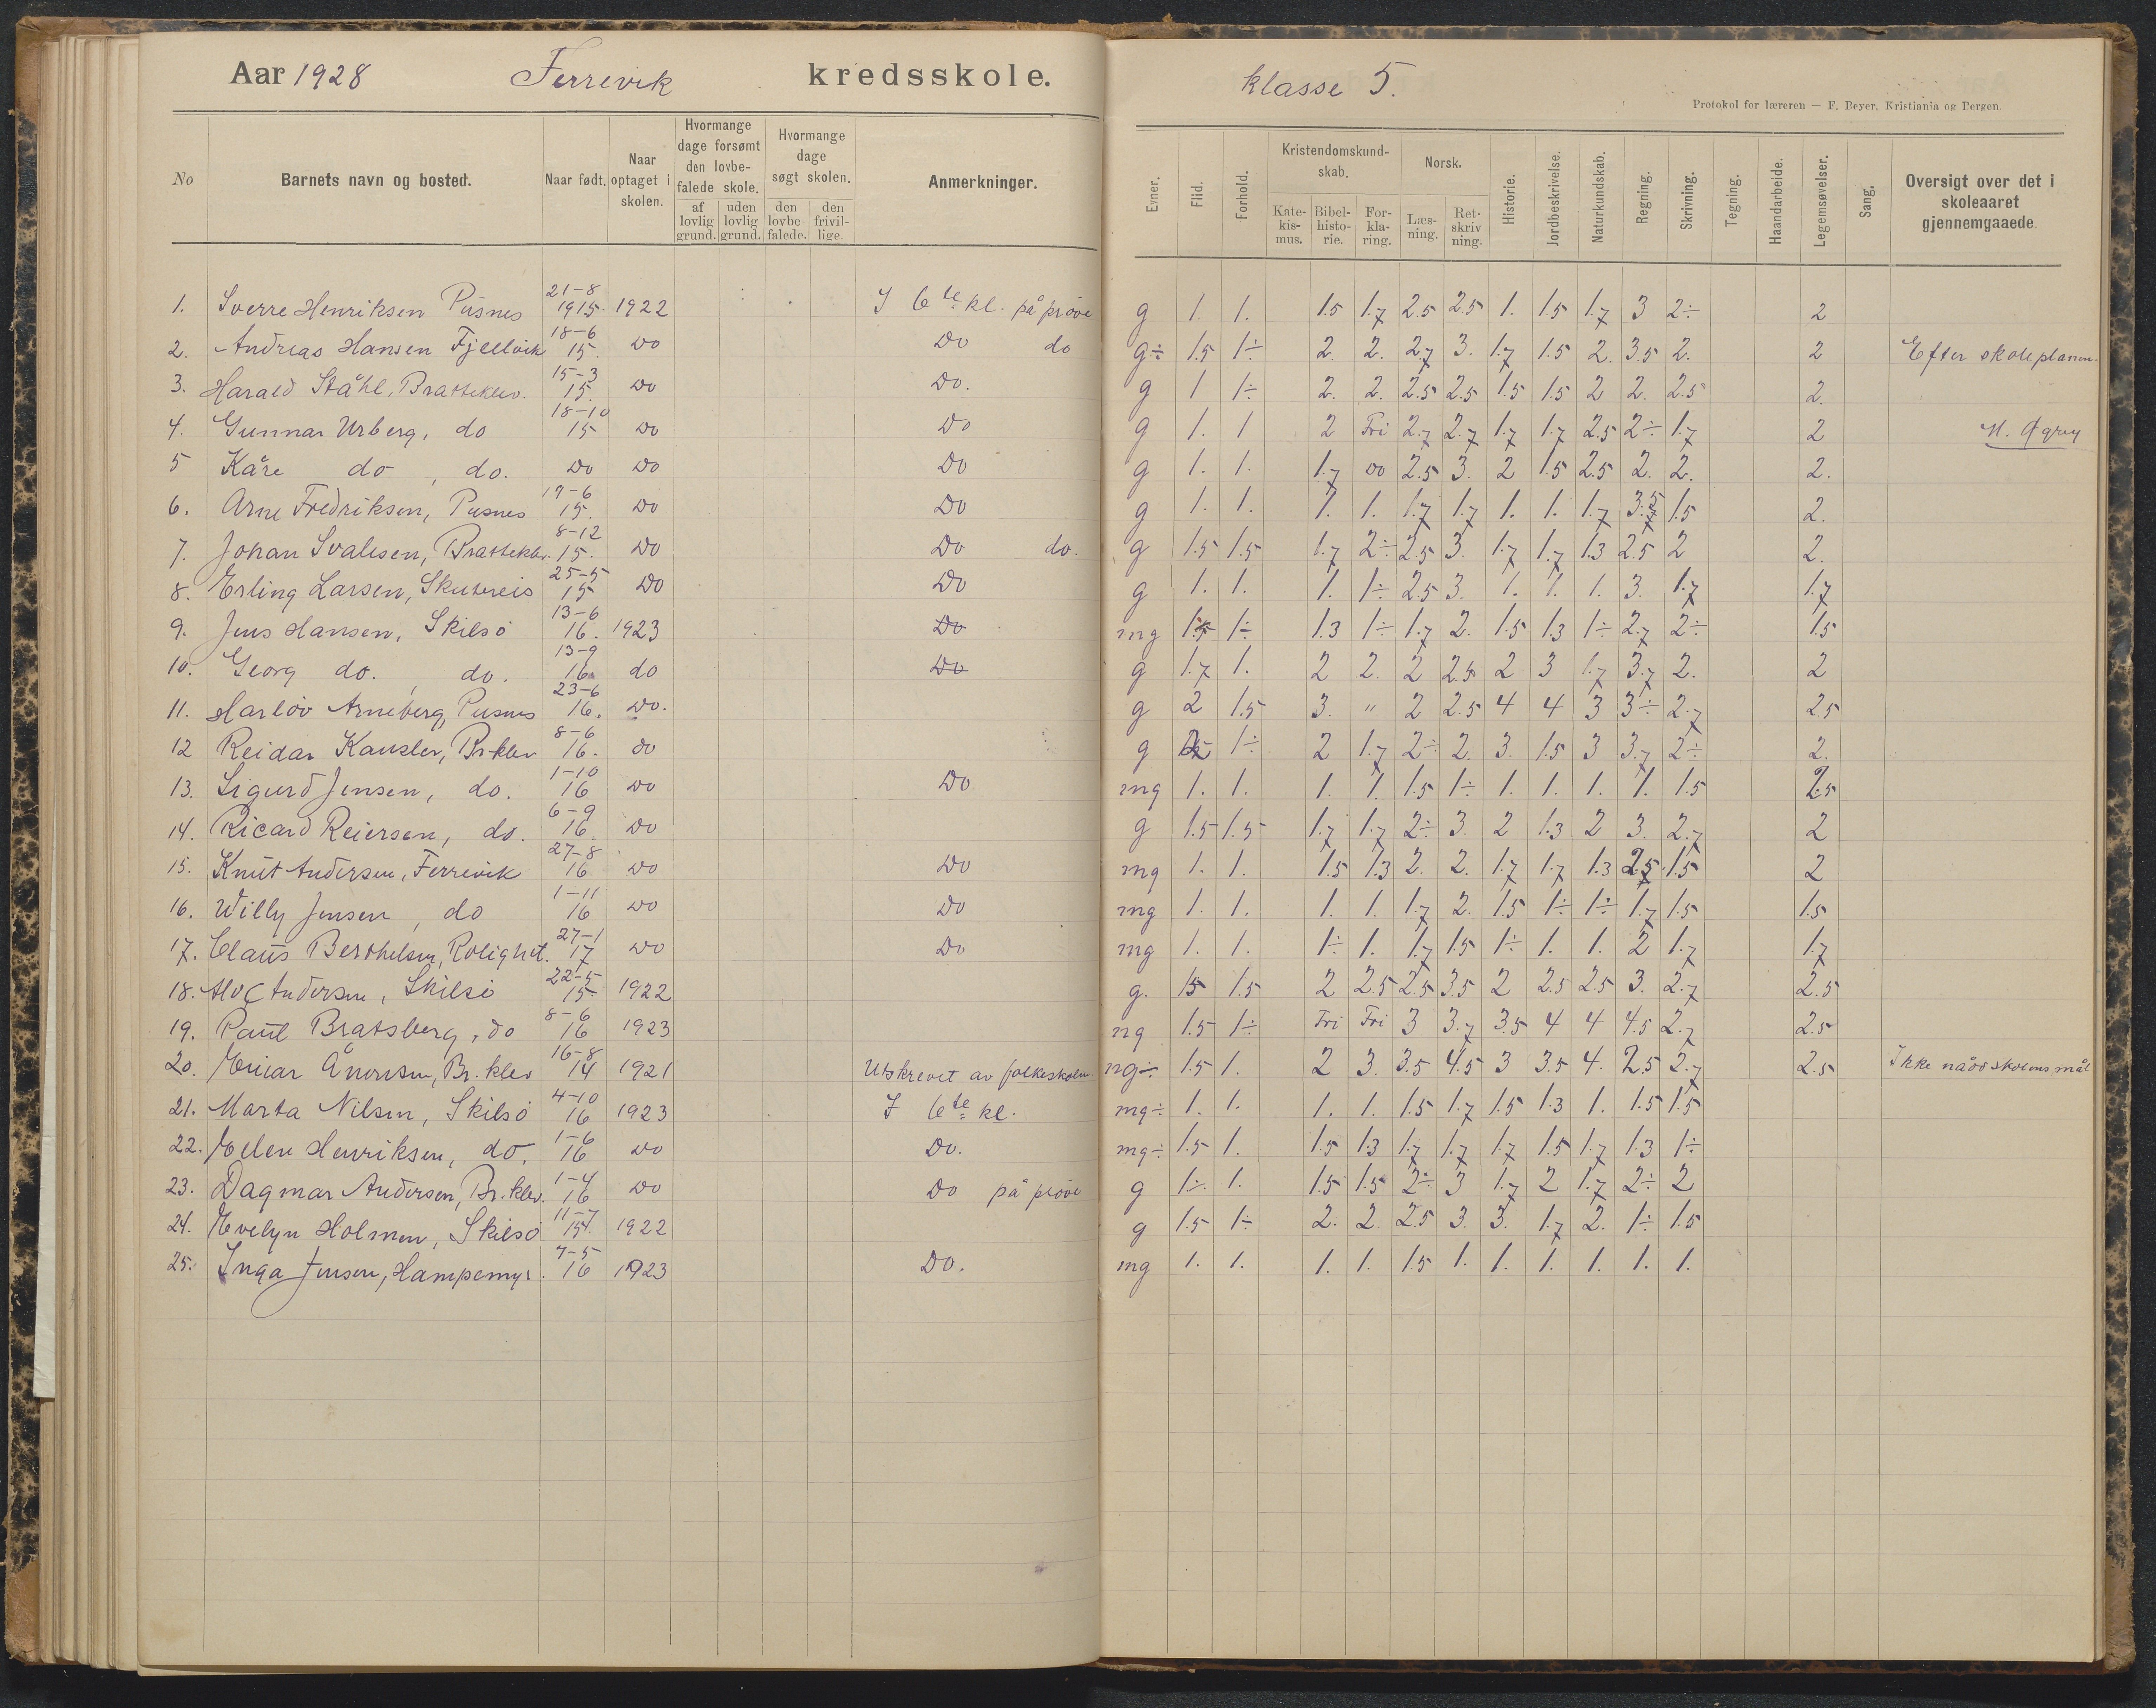 Aar 1928 Ferrevik kredsskole.
klasse 5.
Protokol for læreren — F. Beyer, Kristiania og Bergen.
No Barnets navn og bosted. Naar født. Naar optaget i skolen. Hvormange dage forsømt den lovbefalede skole. af lovlig grund. uden lovlig grund. Hvormange dage søgt skolen. den lovbefalede. den frivillige. Anmerkninger.
Evner. Flid. Forhold. Kristendomskundskab. Katekismus. Bibelhistorie. Forklaring. Norsk. Læsning. Retskrivning. Historie. Jordbeskrivelse. Naturkundskab. Regning. Skrivning. Tegning. Haandarbeide. Legemsøvelser. Sang. Oversigt over det i skoleaaret gjennemgaaede
1. Sverre Henriksen Pusnes 21-8 1915. 1922 I 6te kl. på prøve g 1. 1. 1.5 1.7 2.5 2.5 1. 1.5 1.7 3 2÷ 2
2. Andreas Hansen Fjellvik 18-6 15. Do Do do g÷ 1.5 1÷ 2. 2. 2.7 3. 1.7 1.5 2. 3.5 2. 2 Efter skoleplanen.
3. Harald Ståhl, Bratteklev. 15-3 15. Do Do. g 1 1÷ 2. 2. 2.5 2.5 1.5 1.5 2 2. 2.5 2.
4. Gunnar Urberg, do 18-10 15 Do Do g 1. 1 2 Fri 2.7 2.7 1.7 1.7 2.5 2÷ 1.7 2
5 Kåre do, do. Do Do Do g 1. 1. 1.7 Do 2.5 3. 2 1.5 2.5 2. 2. 2.
6. Arne Fredriksen, Pusnes 17-6 15. Do Do g 1. 1. 1. 1. 1.7 1.7 1. 1. 1.7 3.5 1.5 2.
7. Johan Svalesen, Bratteklev. 8-12 15. Do Do do. g 1.5 1.5 1.7 2÷ 2.5 3. 1.7 1.7 1.3 2.5 2 2.
8. Erling Larsen, Skutereis 25-5 15 Do Do g 1. 1. 1. 1÷ 2.5 3. 1. 1. 1. 3. 1.7 1.7
9. Jens Hansen, Skilsø 13-6 16. 1923 Do mg 1.5 1÷ 1.3 1÷ 1.7 2. 1.5 1.3 1÷ 2.7 2÷ 1.5
10. Georg do., do. 13-9 16. do Do g 1.7 1. 2 2. 2 2.5 2 3 1.7 3.7 2. 2
11. Harløv Arneberg, Pusnes 23-6 16. Do. g 2 1.5 3. " 2 2.5 4 4 3 3÷ 2.7 2.5
12 Reidar Kansler, Br.klev 8-6 16. do g 1÷ 2 1.7 2÷ 2. 3. 1.5 3 3.7 2÷ 2.
13. Sigurd Jensen, do. 1-10 16 Do Do mg 1. 1. 1. 1. 1.5 1÷ 1. 1. 1. 1. 1.5 2.5
14. Ricard Reiersen, do. 6-9 16. Do g 1.5 1.5 1.7 1.7 2÷ 3. 2 1.3 2 3. 2.7 2
15. Knut Andersen, Ferrevik 27-8 16 Do Do mg 1. 1. 1.5 1.3 2. 2. 1.7 1.7 1.3 2.5 1.5 2
16. Willy Jensen, do 1-11 16 Do Do mg 1. 1. 1. 1. 1.7 2. 1.5 1÷ 1÷ 1.7 1.5 1.5
17. Claus Berthelsen, Rolighet. 27-1 17 Do Do mg 1. 1. 1÷ 1. 1.7 1.5 1÷ 1. 1. 2 1.7 1.7
18. Alf Andersen, Skilsø 22-5 15 1922 g. 1.5 1.5 2 2.5 2.5 3.5 2 2.5 2.5 3. 2.7 2.5
19. Paul Bratsberg, do 8-6 16 1923 ng 1.5 1÷ Fri Fri 3 3.7 3.5 4 4 4.5 2.7 2.5
20. Einar Ånonsen, Br.klev 16-8 14 1921 Utskrevet av folkeskolen ng÷ 1.5 1. 2 3. 3.5 4.5 3 3.5 4. 2.5 2.7 2.5 Ikke nådd skolens mål
21. Marta Nilsen, Skilsø 4-10 16 1923 I 6te kl. mg÷ 1. 1. 1. 1. 1.5 1.7 1.5 1.3 1. 1.5 1.5
22. Ellen Henriksen, do. 1-6 16 Do Do. mg÷ 1.5 1. 1.5 1.3 1.7 1.7 1.7 1.5 1.7 1.3 1÷
23. Dagmar Andersen, Br.klev. 1-4 16 Do Do på prøve g 1÷ 1. 1.5 1.5 2÷ 3 1.7 2 1.7 2÷ 2
24. Evelyn Holmen, Skilsø 11-7 1922 g 1.5 1÷ 2. 2. 2.5 3. 3. 1.7 2. 1÷ 1.5
25. Inga Jensen, Hampemyr. 7-5 16 1923 Do. mg 1. 1. 1. 1. 1.5 1. 1. 1. 1. 1. 1.